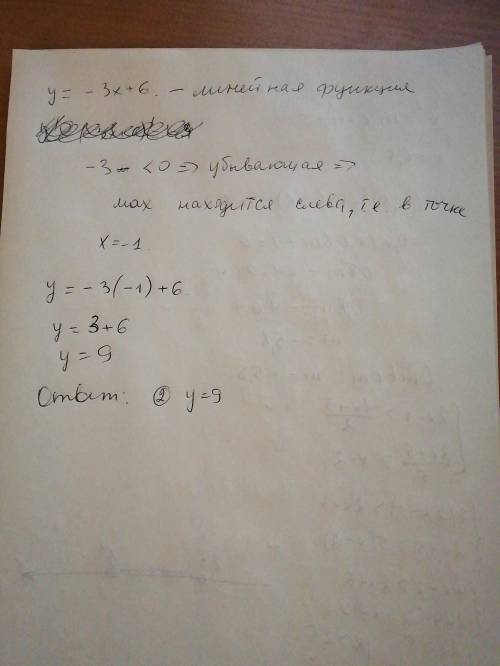 y = -3x+6. - линейная функция
-3 - <0 => убывающая =>
max находится слева, те в точке
x = -1
y = -3(-1)+6
y = 3+6
y = 9
Ответ: ② y=9